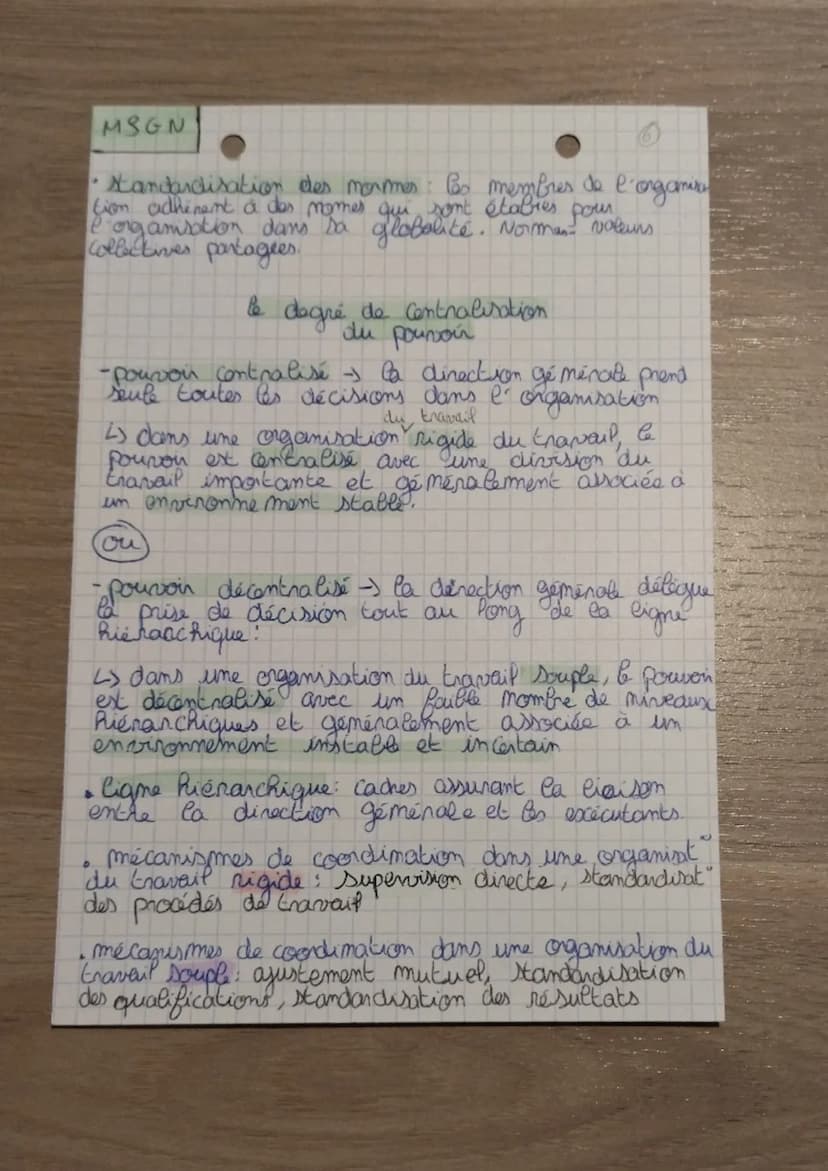 MSGN
6
• Standardisation des normes : les membres de l'organisa
tion adhèrent à des normes qui sont établies pour
l'organisation dans sa globalité. Normes = valeurs
collectives partagées.
le degré de centralisation
du pouvoir
- pouvoir centralisé → la direction générale prend
seule toutes les décisions dans l'organisation
du travail
↳ dans une organisation rigide du travail, le
pouvoir est centralisé avec une division du
travail importante et généralement associée à
un environnement stable.
ou
- pouvoir décentralisé → la direction générale délègue
la prise de décision tout au long de la ligne
hiérarchique :
↳ dans une organisation du travail souple, le pouvoir
est décentralisé avec un faible nombre de niveaux
hiérarchiques et généralement associée à un
environnement instable et incertain
• ligne hiérarchique : cadres assurant la liaison
entre la direction générale et les exécutants.
• mécanismes de coordination dans une organisat°
du travail rigide : supervision directe, standardisat°
des procédés de travail
• mécanismes de coordination dans une organisation du
travail souple : ajustement mutuel, standardisation
des qualifications, standardisation des résultats